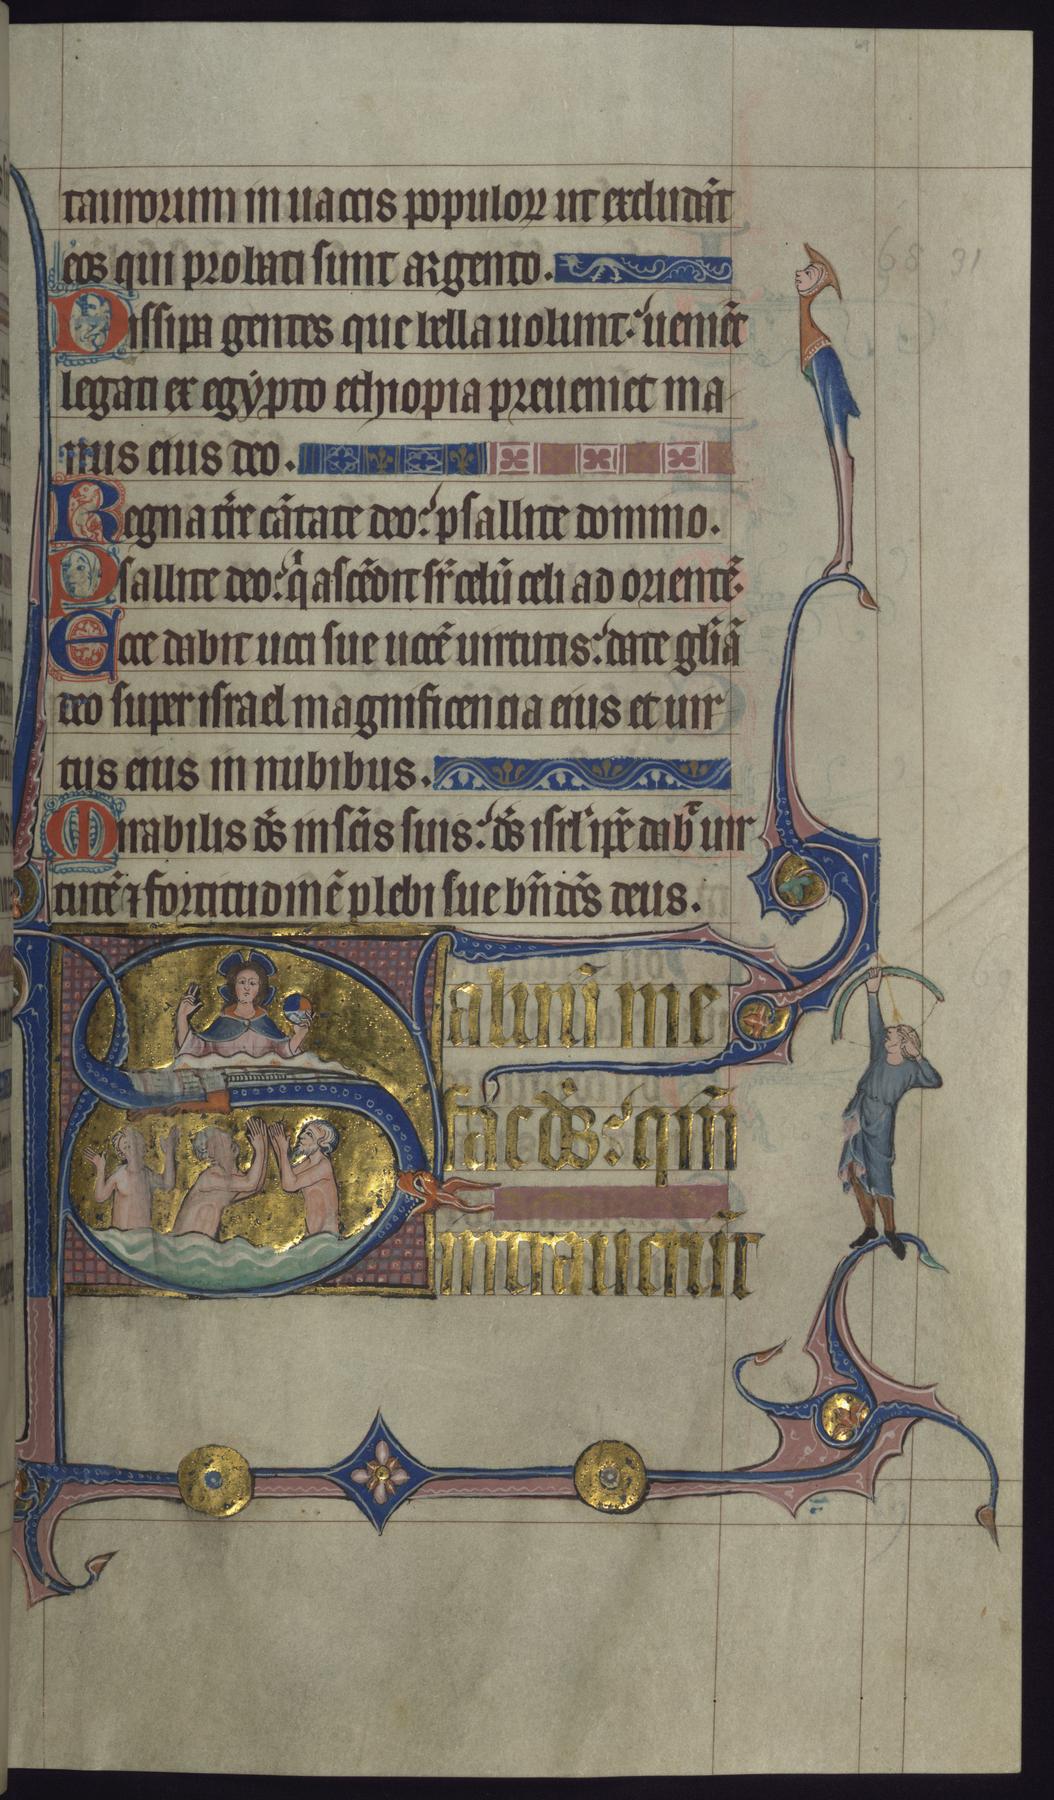 taurorum in uaccis populoꝝ ut excludãt
eos qui probati sunt argento.
Dissipa gentes que bella uolunt: uenient̃
legati ex egẏpto ethiopia preueniet ma
nus eius deo.
Regna tr̃e cãtate deo: psallite domino.
Psallite deo: q̃ ascẽdit sr̃ celũ celi ad orientẽ.
Ecce dabit uoci sue uocẽ uirtutis: date gl̃iã
deo super israel magnificencia eius et uir
tus eius in nubibus.
Mirabilis ds̃ in sc̃is suis: ds̃ isrl̃ ip̃e dab̃ uir
tutẽ ⁊ fortitudinẽ plebi sue bñdc̃s deus.
Saluũ me
fac ds̃: qm̃
intrauerũt
68 91
69